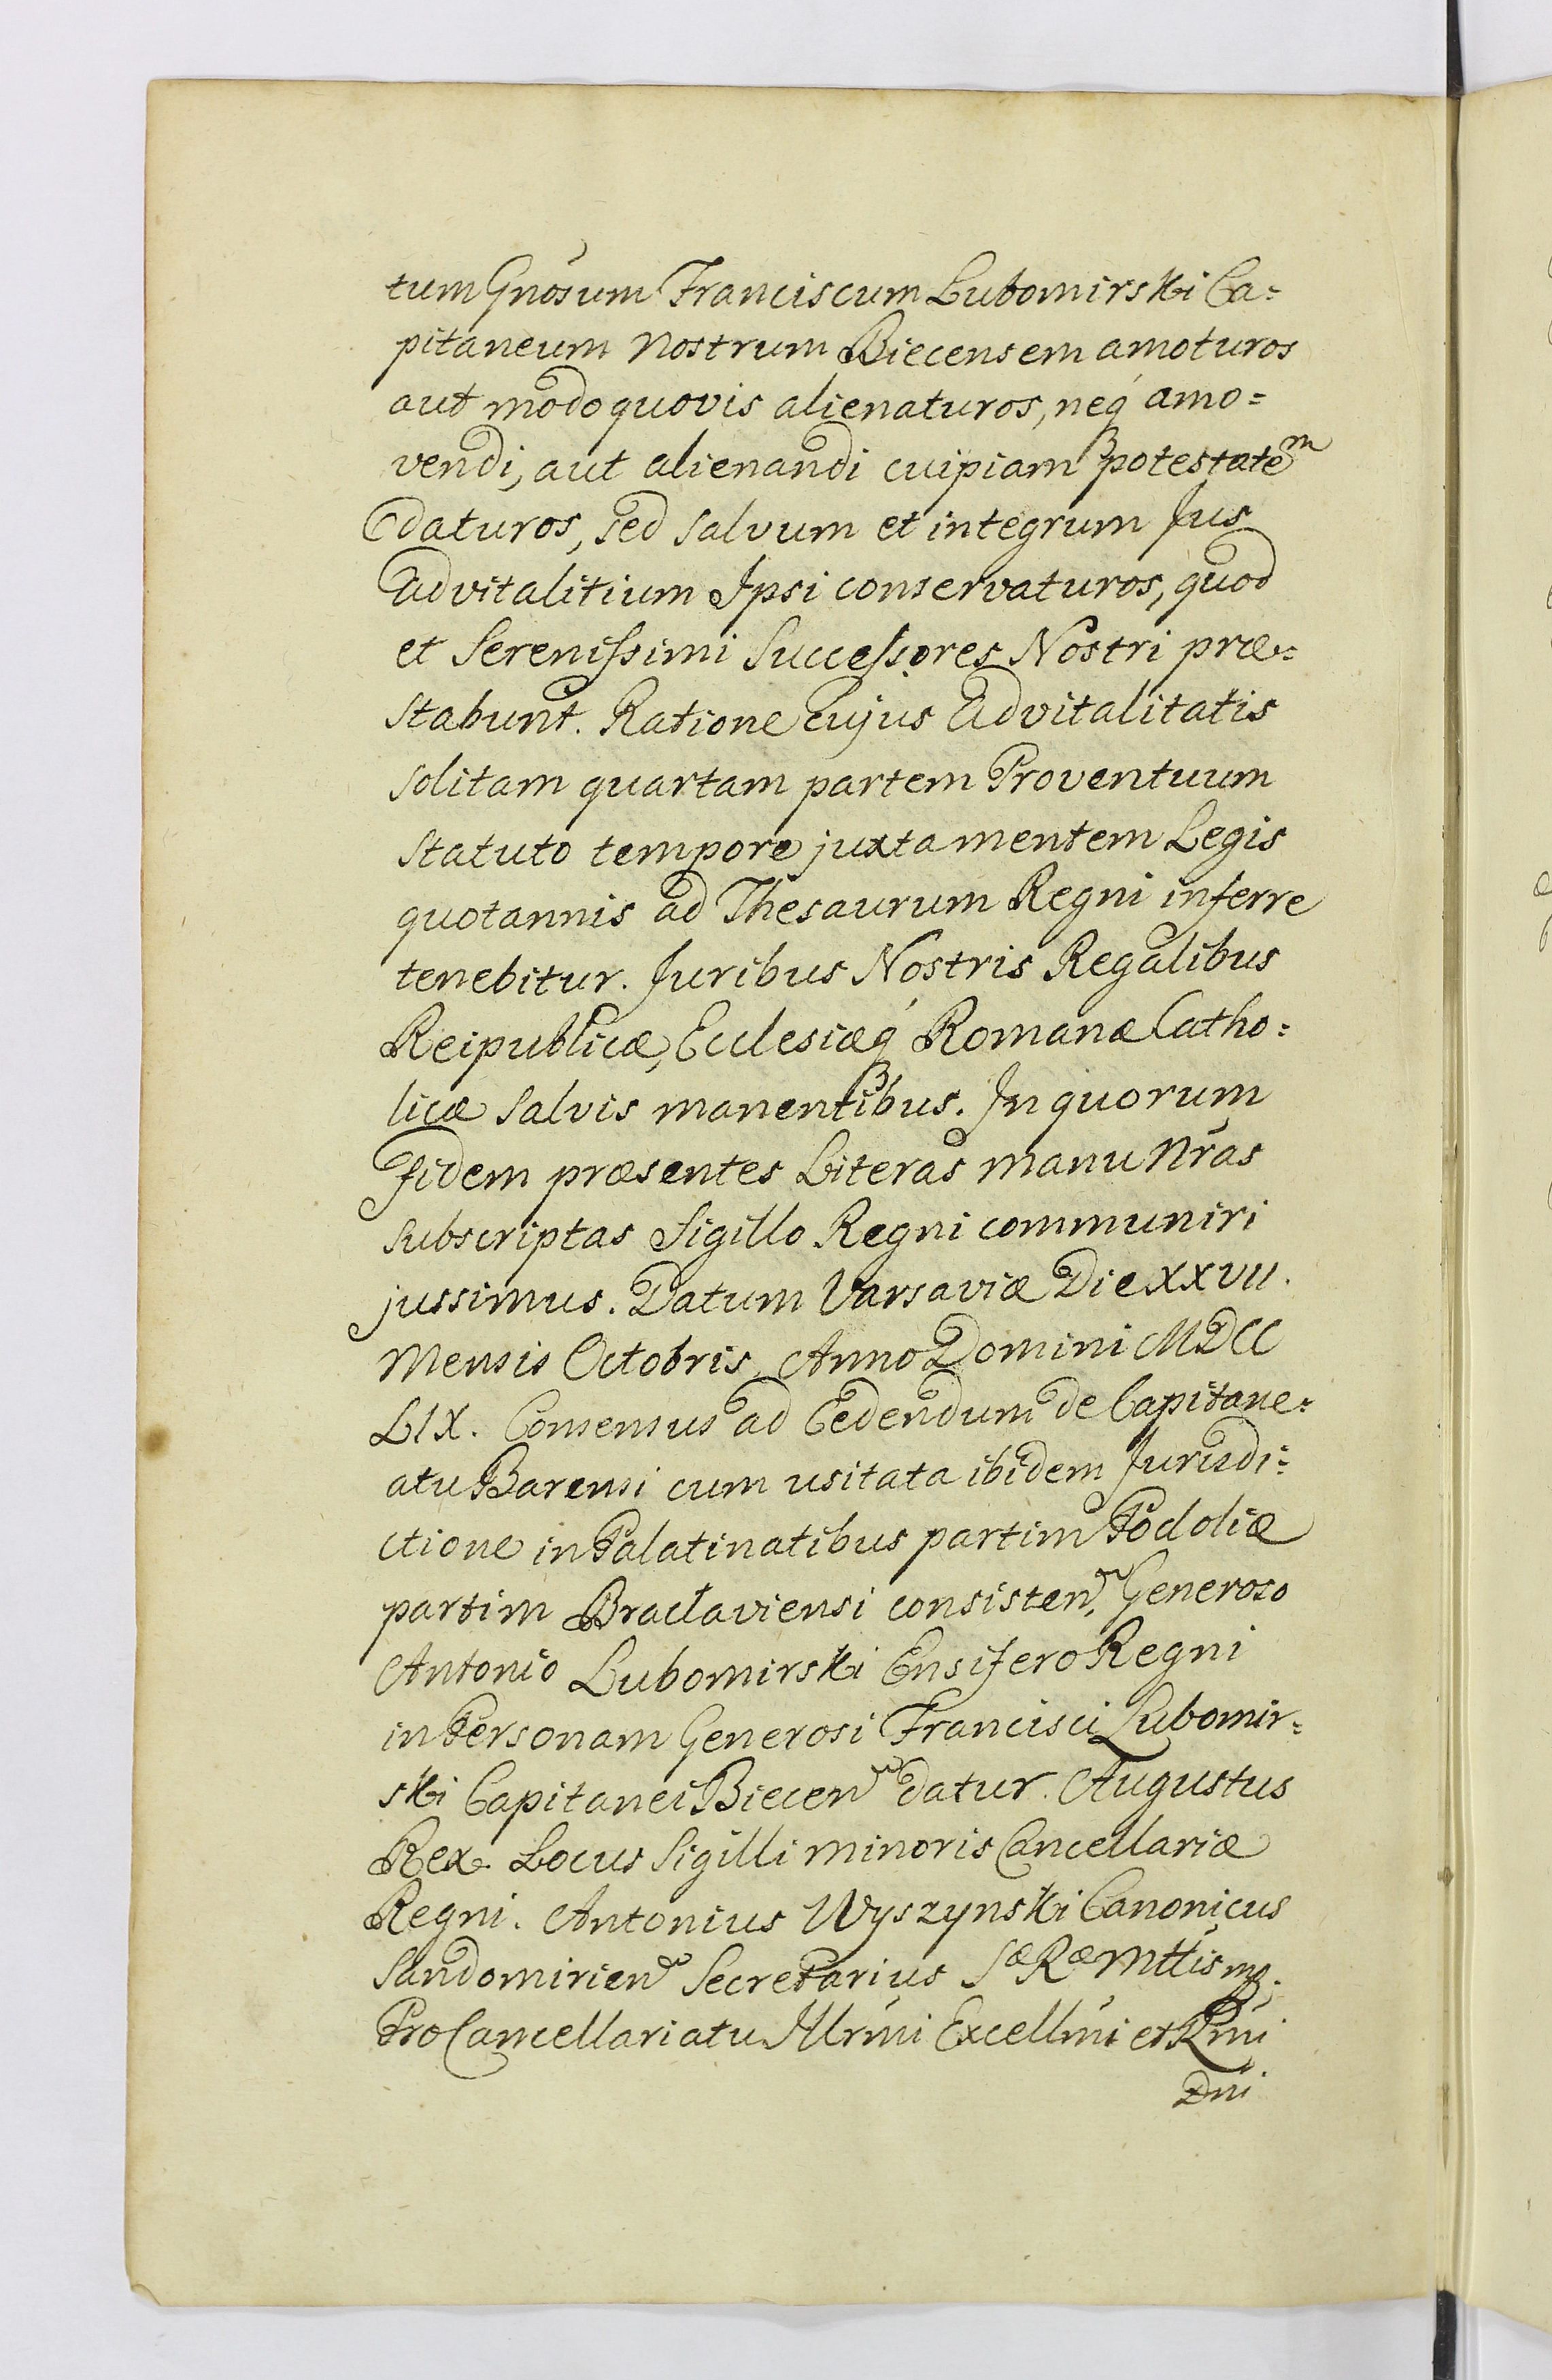 tum Gnosum Franciscum Lubomirski Ca=
pitaneum Nostrum Biecensem amoturos
aut modo quovis alienaturos, neq́ amo=
vendi, aut alienandi cuipiam potestatem
daturos, sed salvum et integrum Jus
Advitalitium Ipsi conservaturos, quod
et Serenissimi Successores Nostri præ=
stabunt. Ratione cujus Advitalitatis
solitam quartam partem Proventuum
statuto tempore juxta mentem Legis
quotannis ad Thesaurum Regni inferre
tenebitur. Juribus Nostris Regalibus
Reipublicæ, Ecclesiæq́ Romanæ Catho=
licæ salvis manentibus. In quorum
fidem præsentes Literas manu Nrás
subscriptas Sigillo Regni communiri
jussimus. Datum Varsaviæ Die XXVII.
Mensis Octobris, Anno Domini MDCC
LIX. Consensus ad Cedendum de Capitane=
atu Barensi cum usitata ibidem Jurisdi=
ctione in Palatinatibus partim Podoliæ
partim Braclaviensi consisten. Generoso
Antonio Lubomirski Ensifero Regni
in Personam Generosi Francisci Lubomir=
ski Capitanei Biecen datur. Augustus
Rex. Locus Sigilli minoris Cancellariæ
Regni. Antonius Wyszynski Canonicus
Sandomirien Secretarius Sæ Ræ Mttis mp.
Pro Cancellariatu Illrmi Excellmi et Rmi
Dni